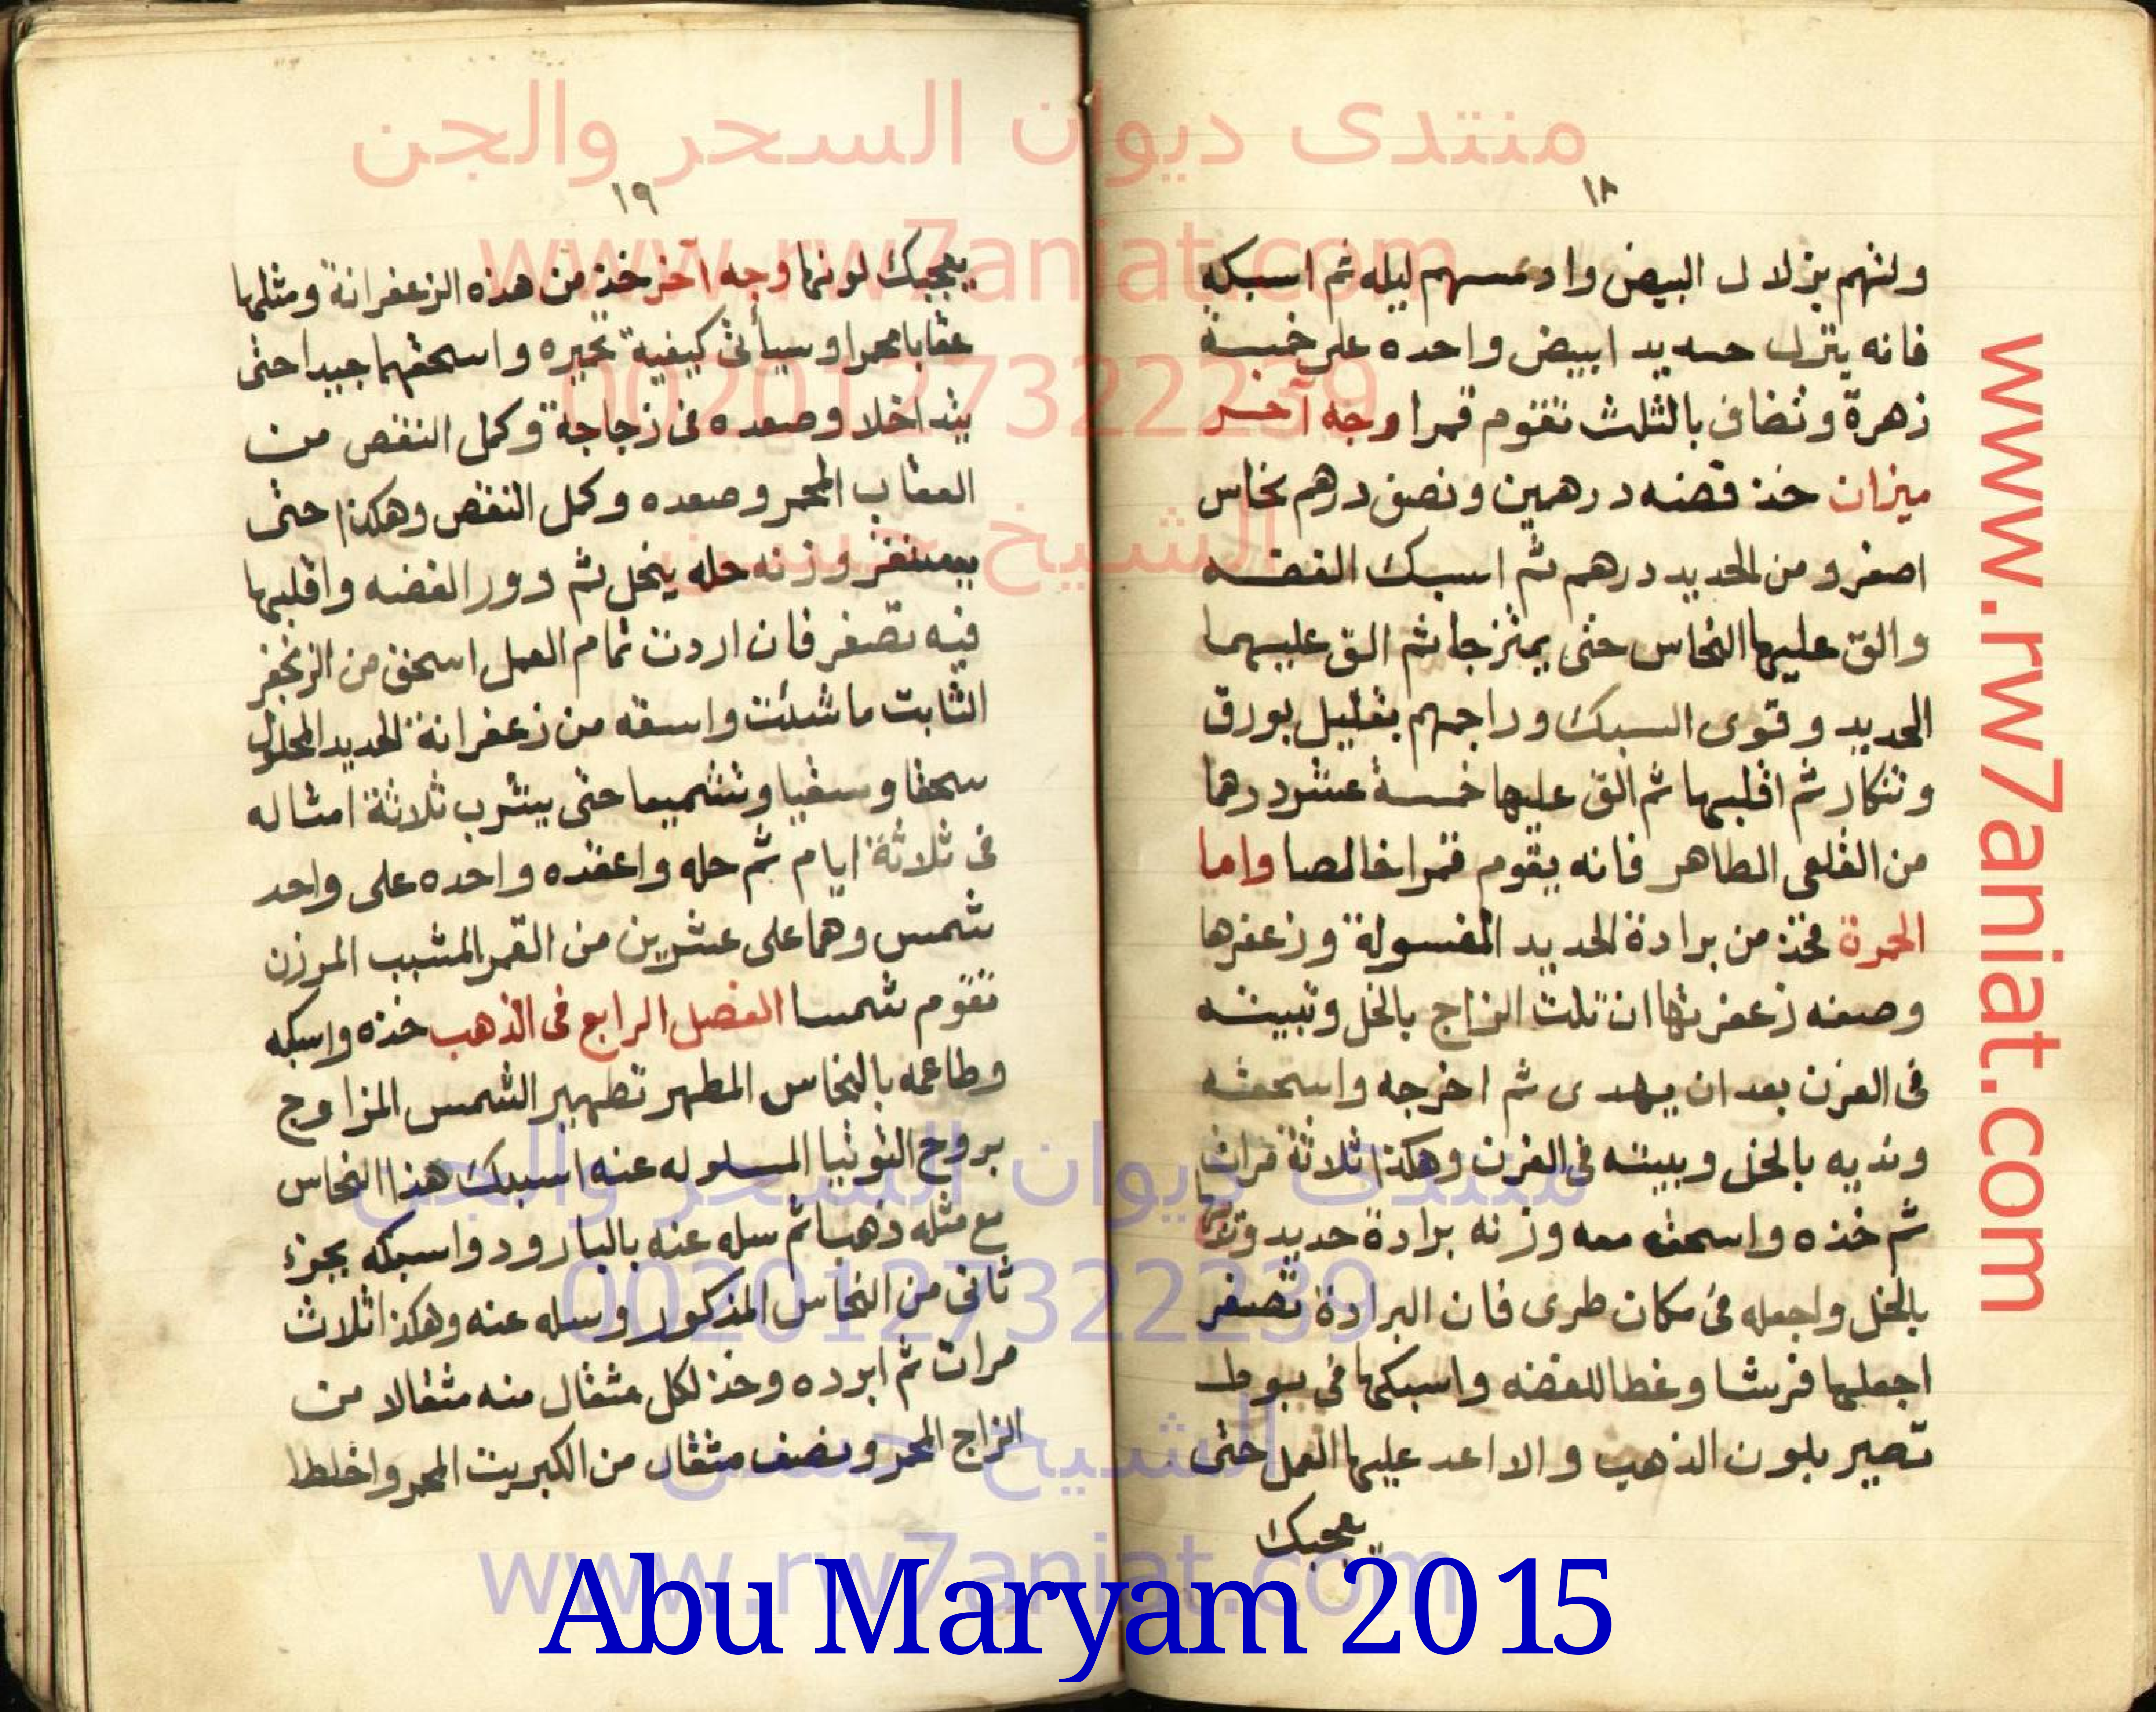 منتدى ديوان السحر والجن
www.rw7aniat.com
00201273222239
الشيخ حسن
١٨
ولتهم بزلال البيض وادمسهم ليله ثم اسبكه
فانه ينزل حديد ابيض واحده على خمسة
زهرة وتضاف بالثلث تقوم قمرا وجه آخر
ميزان خذ فضه درهمين ونصف درهم نحاس
اصفر ومن الحديد درهم ثم اسبك الفضه
والق عليها النحاس حتى يمتزجا ثم الق عليهما
الحديد وقوى السبك وراجهم بقليل بورق
وتنكار ثم اقلبها ثم الق عليها خمسة عشر درهما
من القلعى الطاهر فانه يقوم قمرا خالصا واما
الحمرة فخذ من برادة الحديد المغسولة وزعفرها
وصفه زعفرتها ان تلت الزاج بالخل وتبيته
فى الفرن بعد ان يهدى ثم اخرجه واسحقه
ونديه بالخل وبيته فى الفرن وهكذا ثلاثة مرات
ثم خذه واسحقه معه وزنه برادة حديد
بالخل واجعله فى مكان طرى فان البرادة تصفر
اجعلها فرشا وغطا للفضه واسبكها فى بوط
تصير بلون الذهب والا اعد عليها العمل حتى
يعجبك
١٩
يعجبك لونها وجه آخر خذ من هذه الزعفرانة ومثلها
عقابا محمرا وسيأتى كيفية تحميره واسحقهما جيدا حتى
يتداخلا وصعده فى زجاجة وكمل النقص من
العقاب المحمر وصعده وكمل النقص وهكذا حتى
يستقر وزنه حله ينحل ثم دور الفضه واقلبها
فيه تصفر فان اردت تمام العمل اسحق من الزنجفر
الثابت ما شئت واسقه من زعفرانة الحديد المحلول
سحقا وسقيا وتشميعا حتى يشرب ثلاثة امثاله
فى ثلاثة ايام ثم حله واعقده واحده على واحد
شمس وهما على عشرين من القمر المشبب المرزن
تقوم شمسا الفصل الرابع فى الذهب خذه واسبكه
وطاعمه بالنحاس المطهر تطهير الشمس المزاوج
بروح التوتيا المسلوله عنه اسبك هذا النحاس
مع مثله ذهبا ثم سله عنه بالبارود واسبكه بجزء
ثانى من النحاس المذكور وسله عنه وهكذا ثلاث
مرات ثم ابرده وخذ لكل مثقال منه مثقالا من
الزاج المحمر ونصف مثقال من الكبريت المحمر واخلط
منتدى ديوان السحر والجن
00201273222239
الشيخ حسن
www.rw7aniat.com
Abu Maryam 2015
www.rw7aniat.com